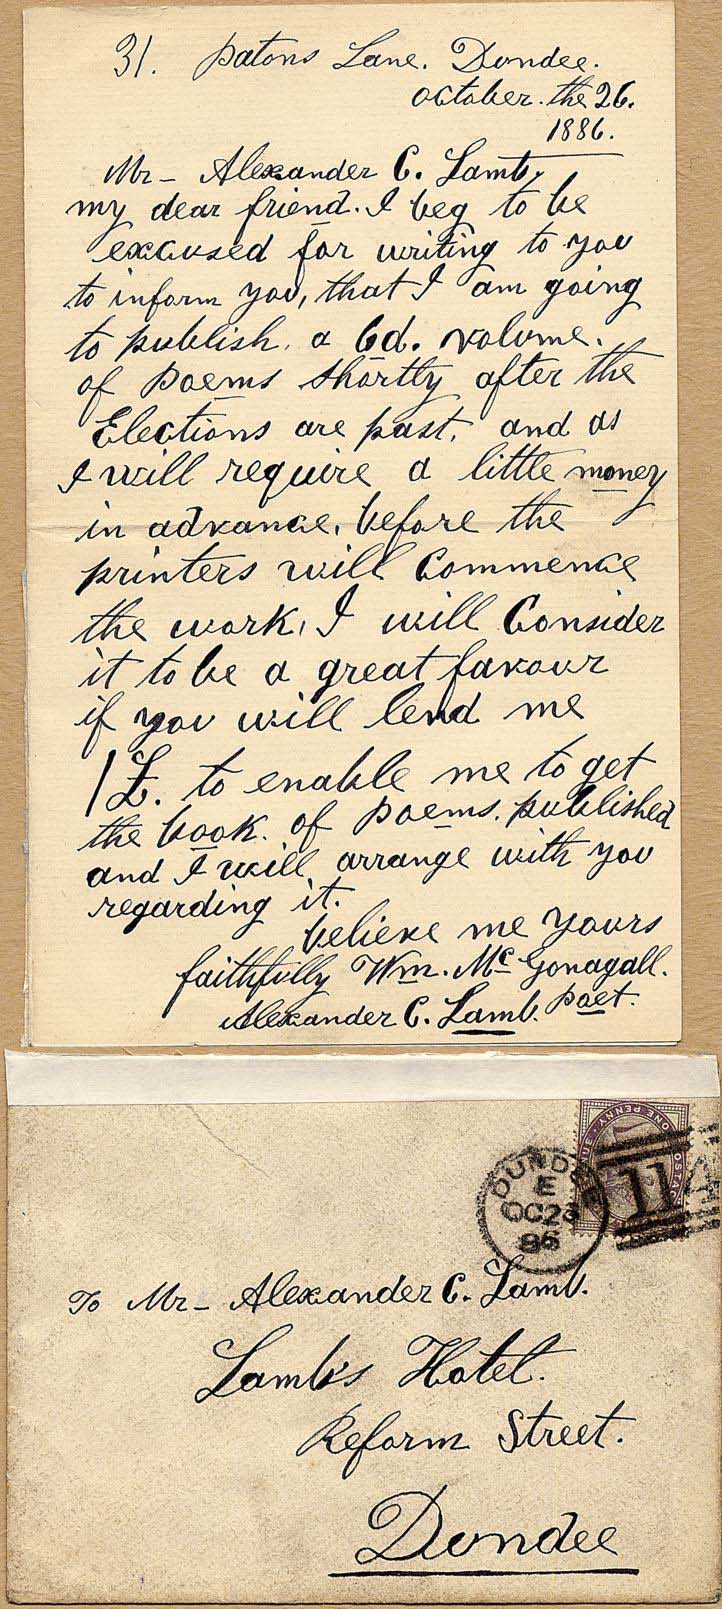 31. Patons Lane. Dundee.
October. the 26.
1886.
Mr - Alexander C. Lamb,
my dear friend. I beg to be
excused for writing to you
to inform you, that I am going
to publish. a 6d. volume.
of poems shortly after the
Elections are past. and as
I will require a little money
in advance, before the
printers will Commence
the work, I will Consider
it to be a great favour
if you will lend me
1£. to enable me to get
the book. of poems. published
and I will arrange with you
regarding it.
believe me yours
faithfully Wm. Mc Gonagall.
poet.
Alexander C. Lamb.
ONE PENNY
DUNDEE
E
OC 26
86
114
To Mr - Alexander C. Lamb.
Lamb's Hotel.
Reform Street.
Dundee